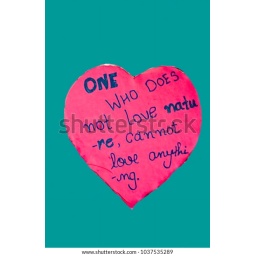 ONE
WHO DOES
not love natu
-re, cannot
love anythi
-ng.
shutterstock
www.shutterstock.com · 1037535289